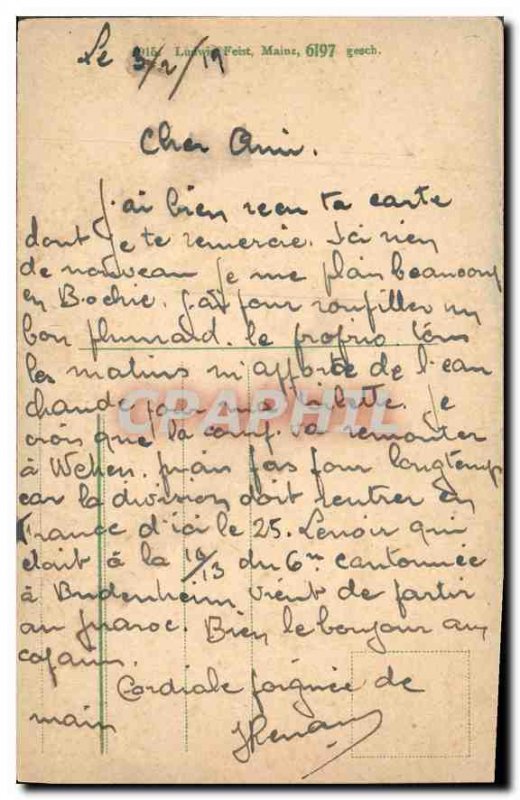 Ludwig Feist, Mainz, 6197 gesch.
Le 3/2/19
Cher Ami.
J'ai bien recu ta carte
dont je te remercie. Ici rien
de nouveau je me plain beaucoup
en Bochie. j'ai pour roupiller un
bon plumard. le proprio tous
les matins m'apporte de l'eau
chaude pour ma toilette. Je
crois que la comp. va remonter
à mais pas pour longtemps
car la division doit rentrer en
France d'ici le 25. Lenoir qui
etait à la 13 du 6me cantonnée
à Budenheim vient de partir
au maroc. Bien le bonjour aux
copains.
Cordiale poignée de
main
CRAPHIL